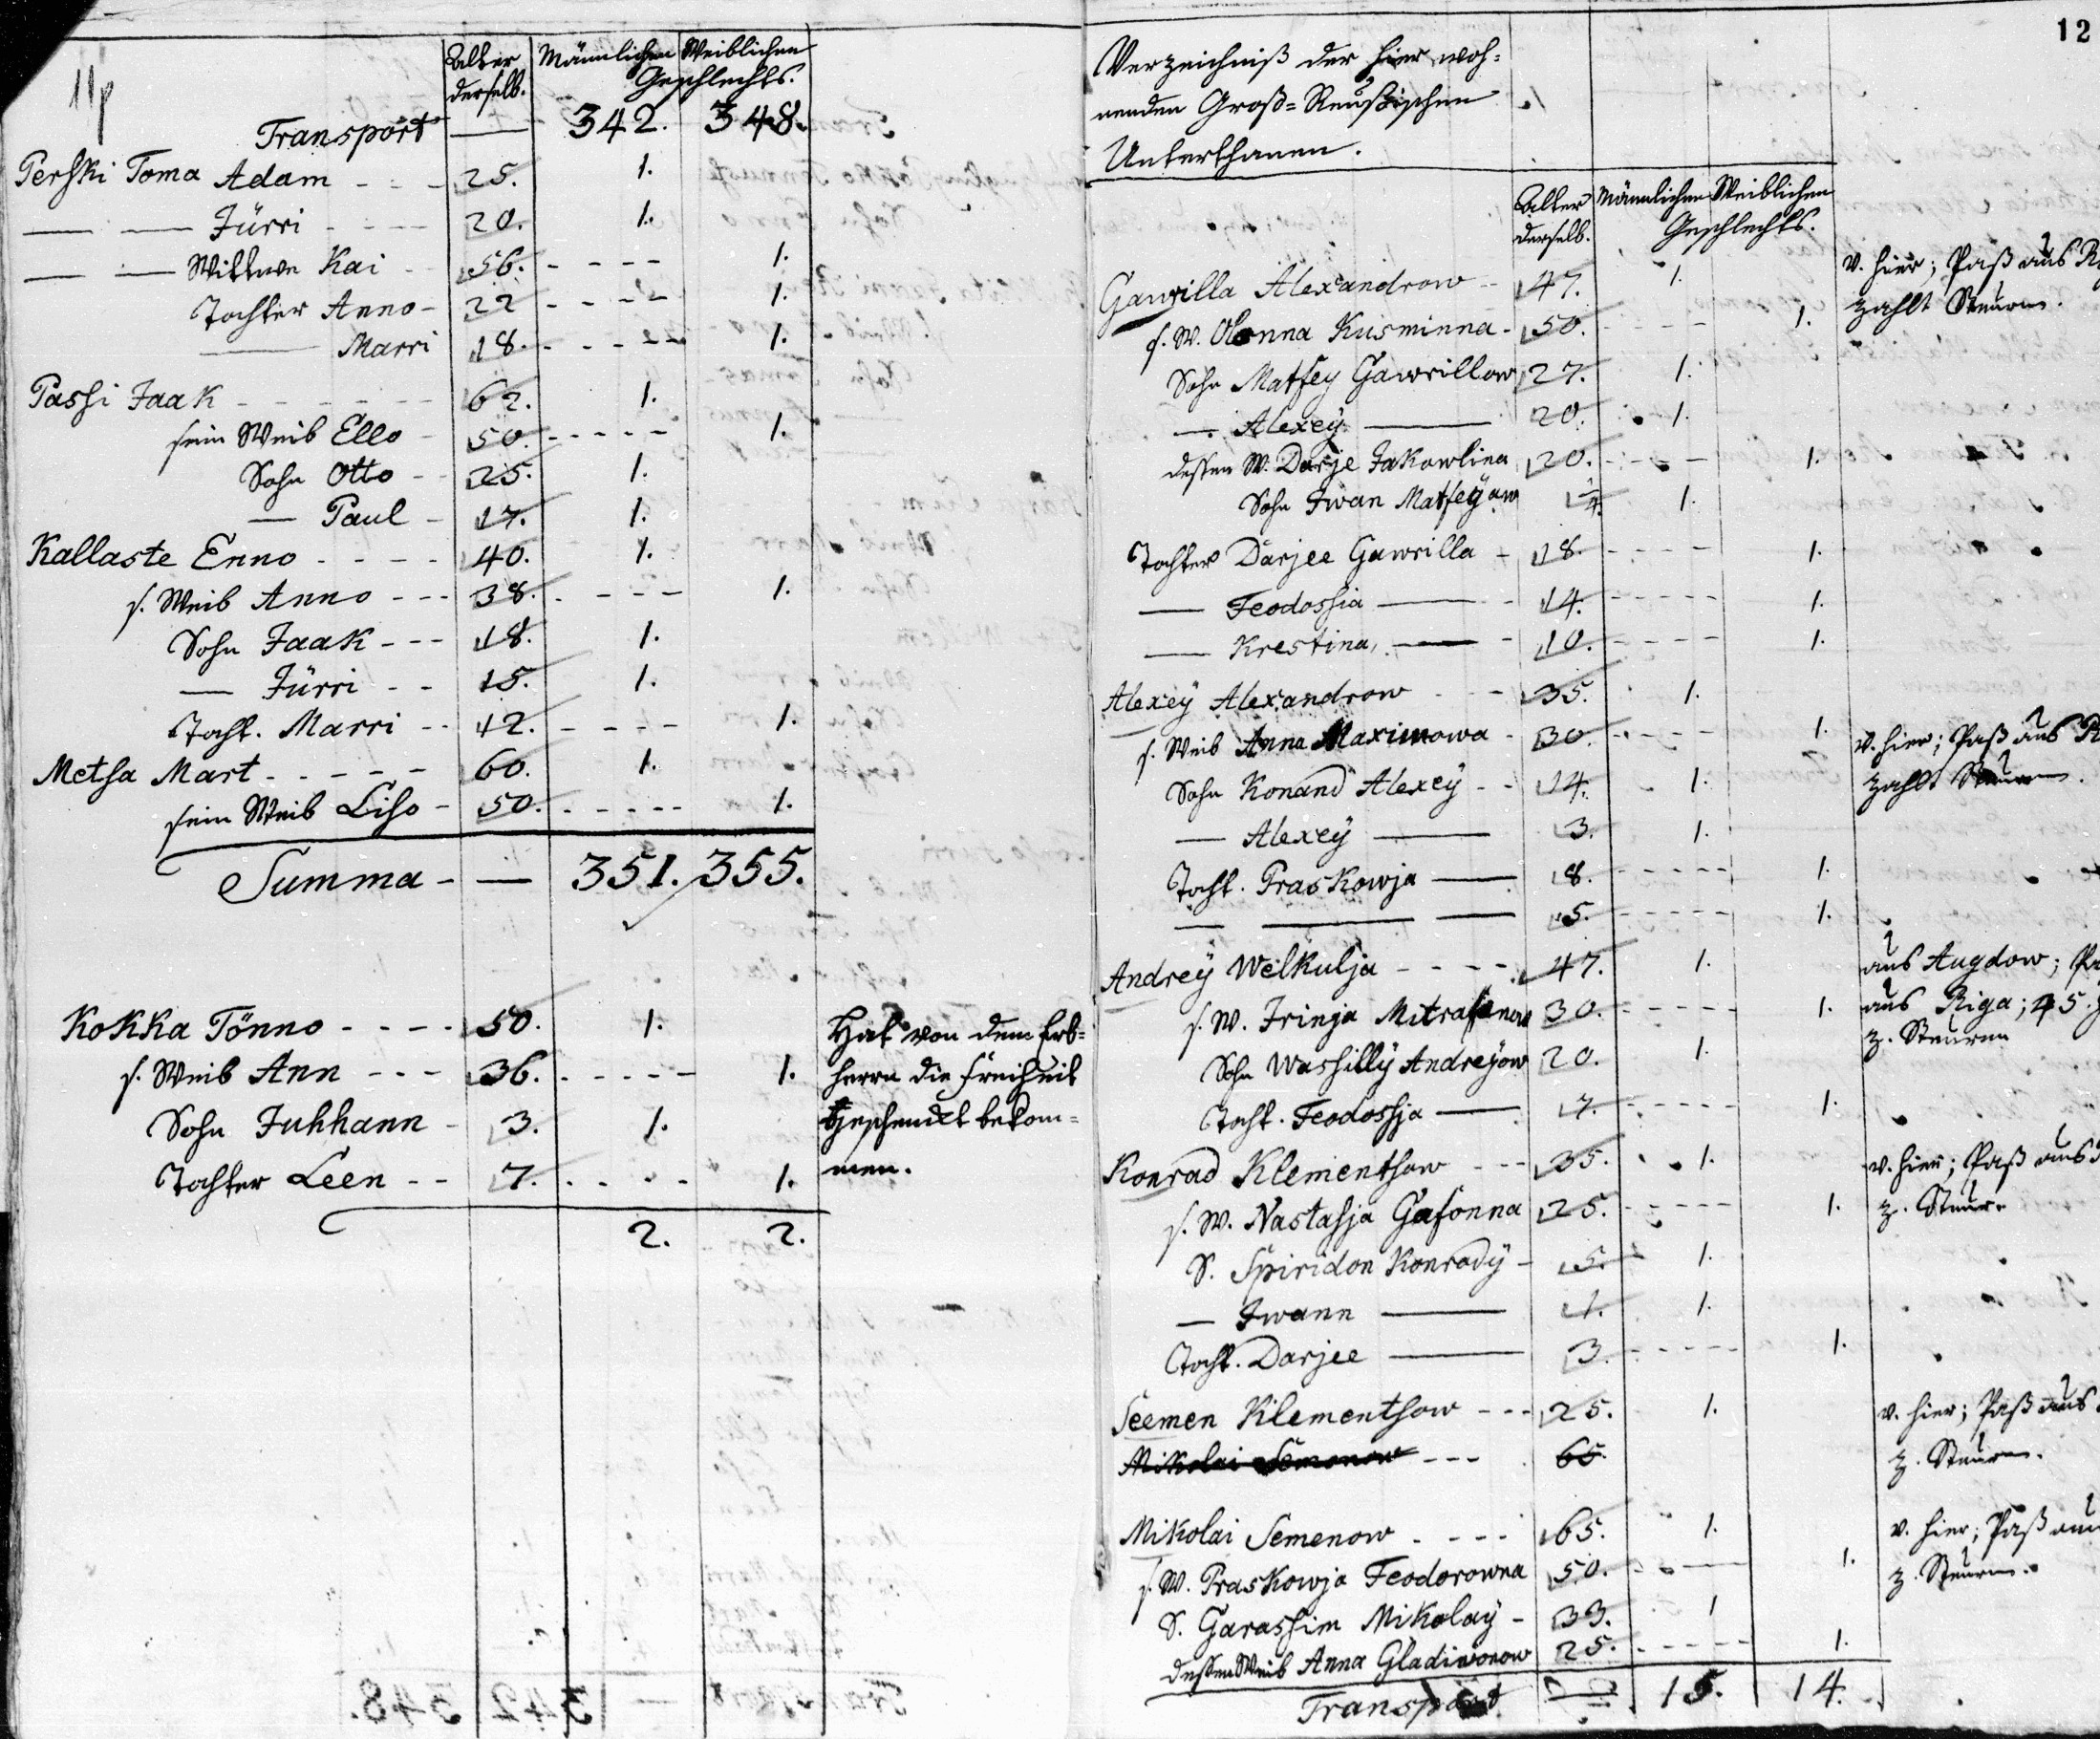 11p
Alter Männlichen Weiblichen
derselb. Geschlechts.
Transport — 342. 348.
Perski Toma Adam - - - 25. 1.
— — Jürri - - - - 20. 1.
— — Wittwe Kai - - 56. - - - - 1.
Tochter Anno - 22 - - - - 1.
— Marri 18. - - - - - 1.
Passi Jaak - - - - - - 62. 1.
sein Weib Ello - 50. - - - - - 1.
Sohn Otto - - 25. 1.
— Paul - 17. 1.
Kallaste Enno - - - - 40. 1.
s. Weib Anno - - - 38. - - - - 1.
Sohn Jaak - - - 18. 1.
— Jürri - - 15. 1.
Tocht. Marri - - 12. - - - - 1.
Metsa Mart - - - - - 60. 1.
sein Weib Liso - 50. - - - - - 1.
Summa - — 351. 355.
Kokka Tönno - - - - 50. 1. Hat von dem Erb=
s. Weib Ann - - - 36. - - - - - 1. herrn die Freiheit
Sohn Juhhann - 3. 1. geschenckt bekom=
Tochter Leen - - 7. - - - - 1. men.
2. 2.
12
Verzeichniß der hier woh=
nenden Groß=Reußischen
Unterthanen.
Alter Männlichen Weiblichen
derselb. Geschlechts.
Gawrilla Alexandrow - - 47. 1. v. hier; Paß aus
s. W. Olonna Kusminna - 50. - - - - 1. zahlt Steuern.
Sohn Matfey Gawrillow 27. 1.
— Alexey — 20. 1.
dessen W. Darje Jakowlina 20. - - - - 1.
Sohn Iwan Matfeyow 1/4. 1.
Tochter Darjee Gawrilla - 18. - - - - 1.
— Feodossia — - 14. - - - - - 1.
— Krestina, — - 10. - - - - 1.
Alexey Alexandrow - - 35. 1.
s. Weib Anna Maximowa - 30. - - - - 1. v. hier; Paß aus
Sohn Konand Alexey - - 14. 1. zahlt Steuern.
— Alexeÿ — 3. 1.
Tocht. Praskowja — 8. - - - - - 1.
— — — 5. - - - - - 1.
Andreÿ Welkulja - - - - 47. 1. aus Augdow;
s. W. Irinja 30. - - - - - 1. aus Riga; 45.
Sohn Wassilly Andreyow 20. 1. z. Steuren
Tocht. Feodossja — 7. - - - - - 1.
Konrad Klementsow - - - 35. 1. v. hier; Paß aus
s. W. Nastasja Gafonna 25. - - - - - 1. z. Steur.
S. Spiridon Konrady - 5. 1.
— Iwann — 1. 1.
Tocht. Darjee — 3. - - - - - 1.
Seemen Klementsow - - - 25. 1. v. hier; Paß aus
Mikolai Semenow - - - 65. z. Steuren.
Mikolai Semenow - - - - 65. 1. v. hier; Paß aus
s. W. Praskowja Feodorowna 50. - - — 1. z. Steuren.
S. Garassim Mikolaÿ - 33. 1
dessen Weib Anna Gladiworow 25. - - - - - 1.
Transport — 15. 14.